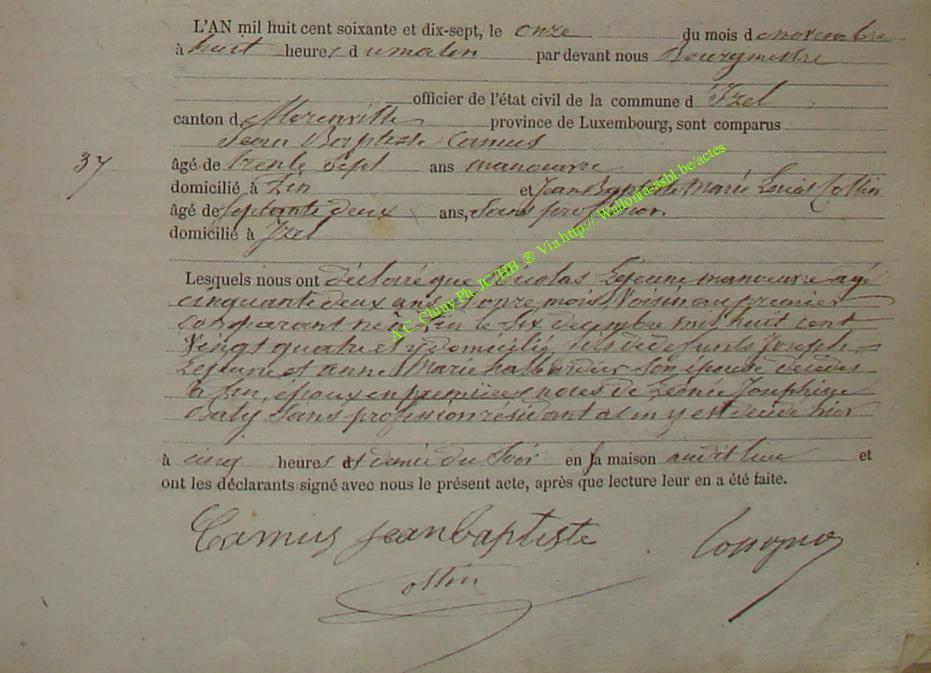 L'AN mil huit cent soixante et dix-sept, le onze du mois de novembre
à huit heures du matin par devant nous Bourgmestre
officier de l'état civil de la commune d Izel
canton de Florenville province de Luxembourg, sont comparus
Jean Baptiste Camus
37
âgé de trente Sept ans manoeuvre
domicilié à et Jean Baptiste Marie Louis Collin
âgé de septante deux ans, Sans profession
domicilié à Izel
Lesquels nous ont déclaré que Nicolas Lejeune manoeuvre agé
cinquante deux ans onze mois Voisin au premier
comparant né le Six decembre mil huit cent
Vingt quatre et y domicilié fils de defunts Joseph
Lejeune et anne Marie son épouse décédés
époux en premières noces de Josephine
Sans profession résidant y est décédé hier
à cinq heures et demie du Soir en la maison audit lieu et
ont les déclarants signé avec nous le présent acte, après que lecture leur en a été faite.
Camus jean baptiste
Collin
A.C. Chiny Ph. JC/HB ® Via http:// Wallonia-asbl.be/actes